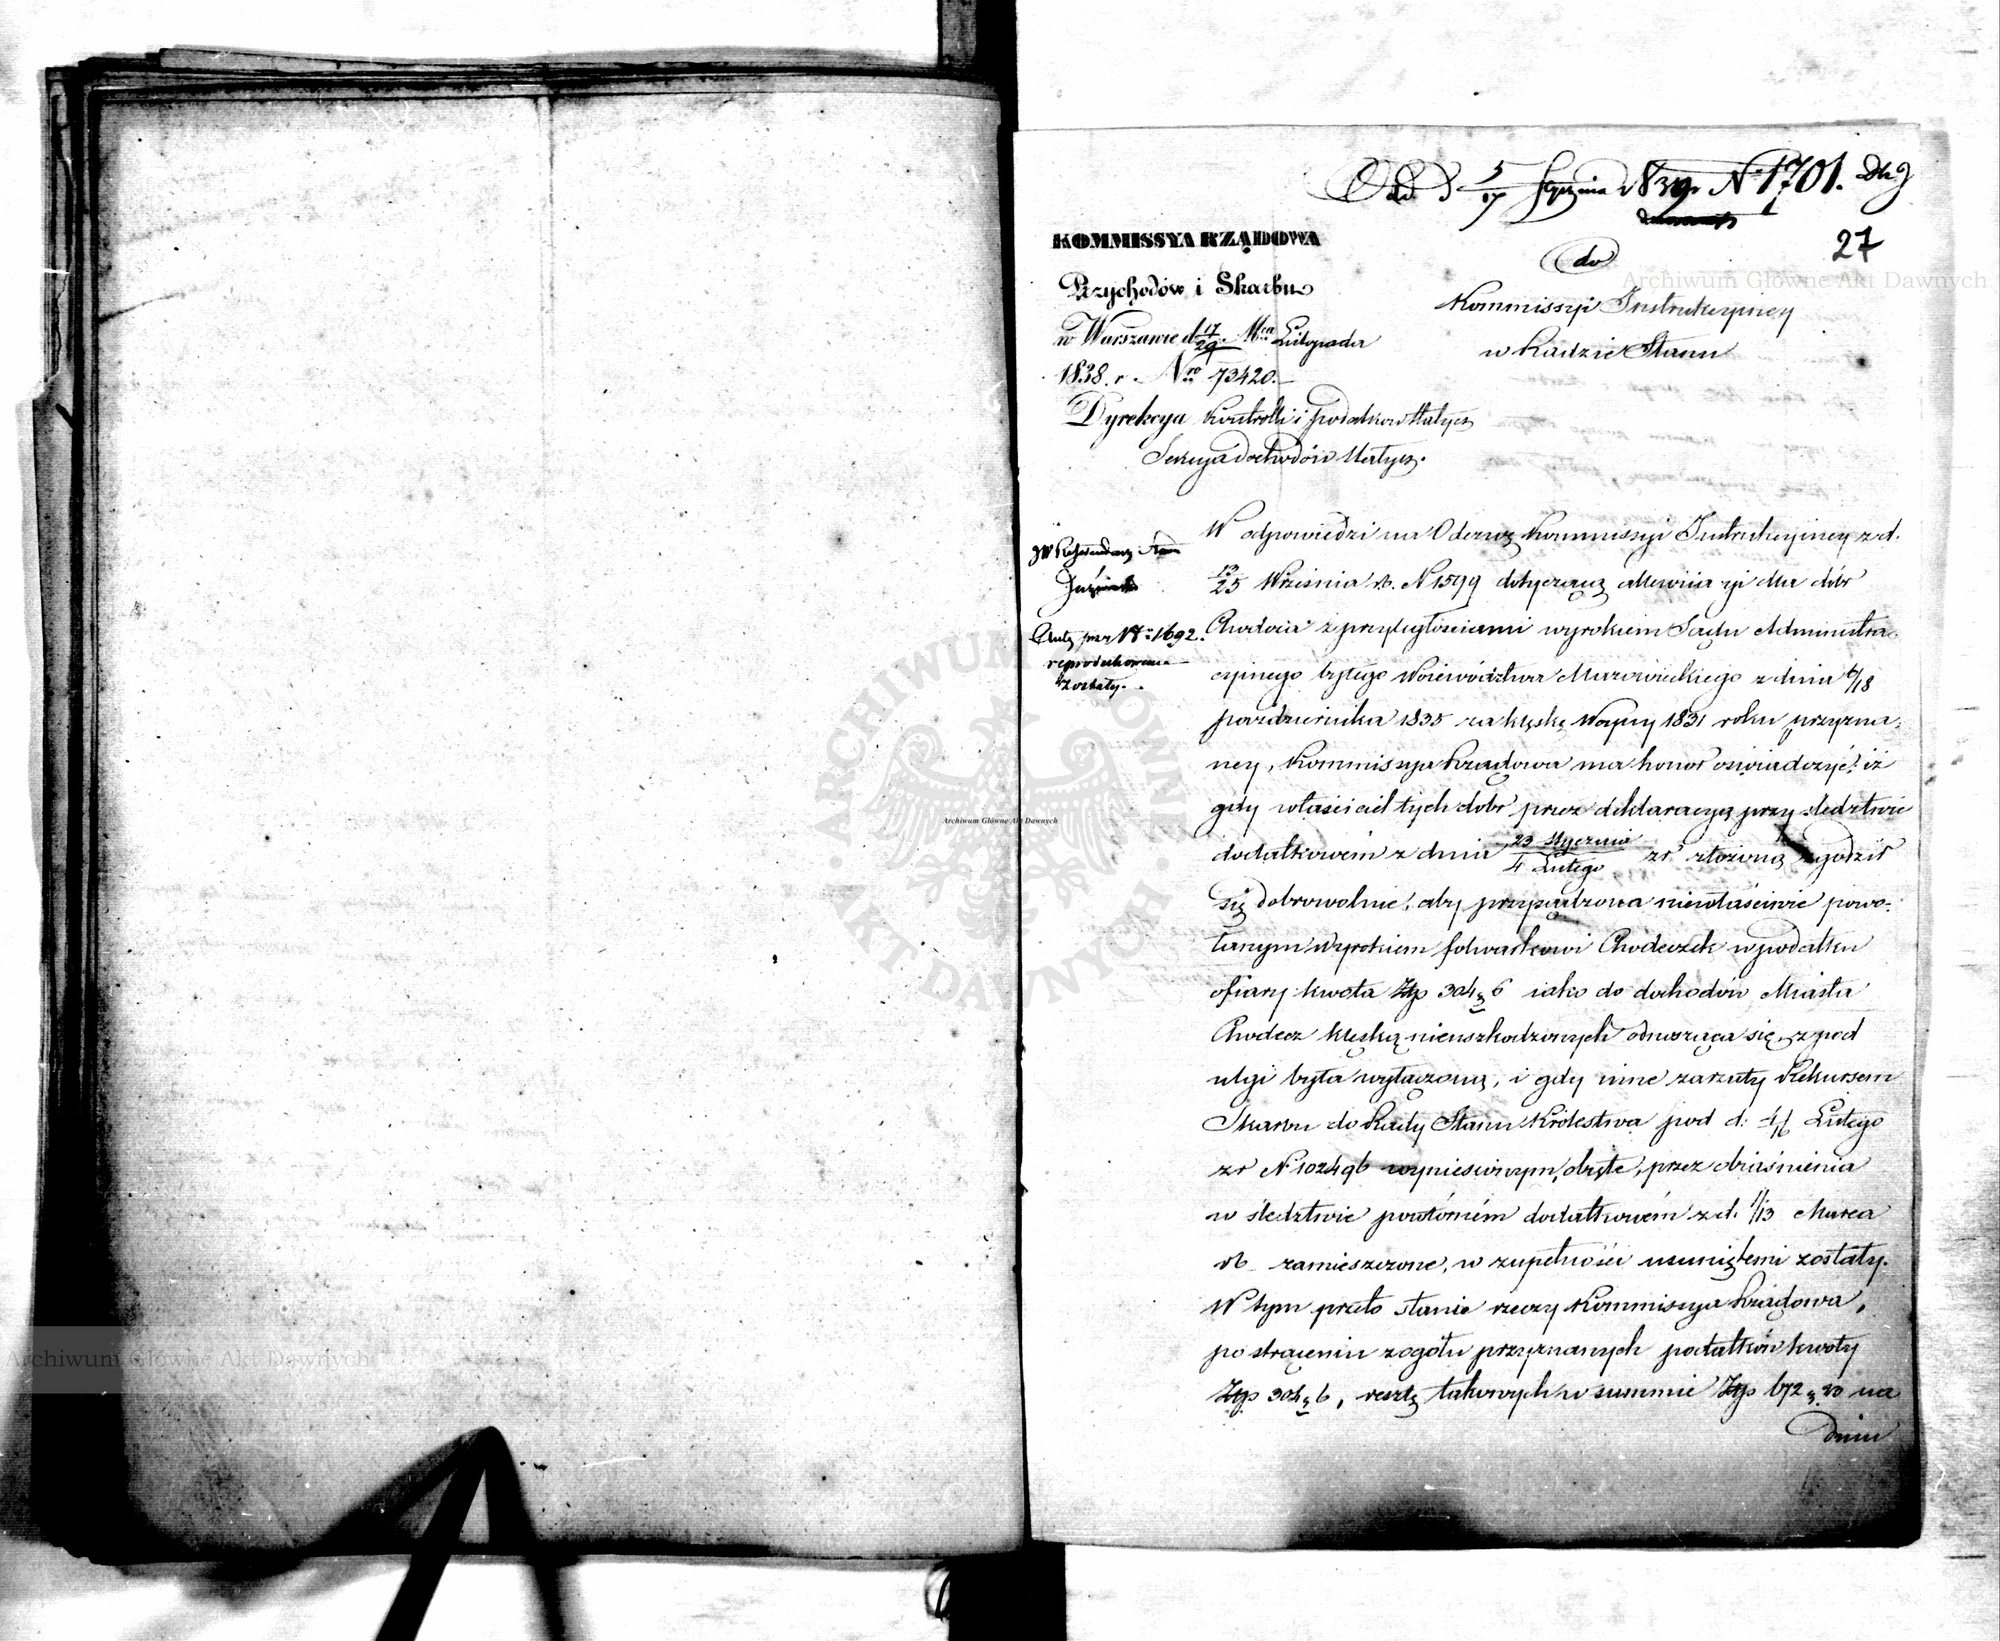 Odd d 5/17 Stycznia 1839 r N 1701.
27
KOMMISSYA RZĄDOWA
Przychodów i Skarbu
w Warszawie d 17/29. Mca Listopada
1838. r. Nro 73420.
Dyrekcya Kontrolli i podatkow Statych
Sekcya dochodów Statych.
do
Kommissyi Instrukcyiney
w Radzie Stanu
JW Referendarz Stanu
Akta przy Nrze 1692.
reprodukowane
zostały.
W odpowiedzi na Odezwę Kommissyi Instrukcyiney z d.
13/25 Września rb. N 1599 dotyczącą allewiiacyi dla dóbr
Chodcza z przyległościami wyrokiem Sądu Administra-
cyinego byłego Województwa Mazowieckiego z dnia 6/18
października 1835 za klęskę Woyny 1831 roku przyzna-
ney, Kommissya Rządowa ma honor oświadczyć: iż
gdy właściciel tych dóbr przez deklaracyą przy śledztwie
dodatkowém z dnia 23 Stycznia/4 Lutego zr złożoną zgodził
się dobrowolnie, aby przysądzona niewłaściwie powo-
łanym wyrokiem folwarkowi Chodeczek w podatku
ofiary kwota Złp 304 g 6 iako do dochodów Miasta
Chodecz klęską nieuszkodzonych odnosząca się, z pod
ulgi była wyłączoną, i gdy inne zarzuty Rekursem
Skarbu do Rady Stanu Królestwa pod d: 4/16 Lutego
zr N 102496 wyniesionym, objęte, przez obiaśnienia
w śledztwie powtórném dodatkowém z d. 1/13 Marca
rb zamieszczone, w zupełności usuniętemi zostały.
W tym przeto stanie rzeczy Kommissya Rządowa,
po strąceniu z ogółu przyznanych podatków kwoty
Złp 304 g 6, resztę takowych w summie Złp 672 g 20 na
dniu
Archiwum Główne Akt Dawnych
Archiwum Główne Akt Dawnych
Archiwum Główne Akt Dawnych
ARCHIWUM GŁÓWNE AKT DAWNYCH